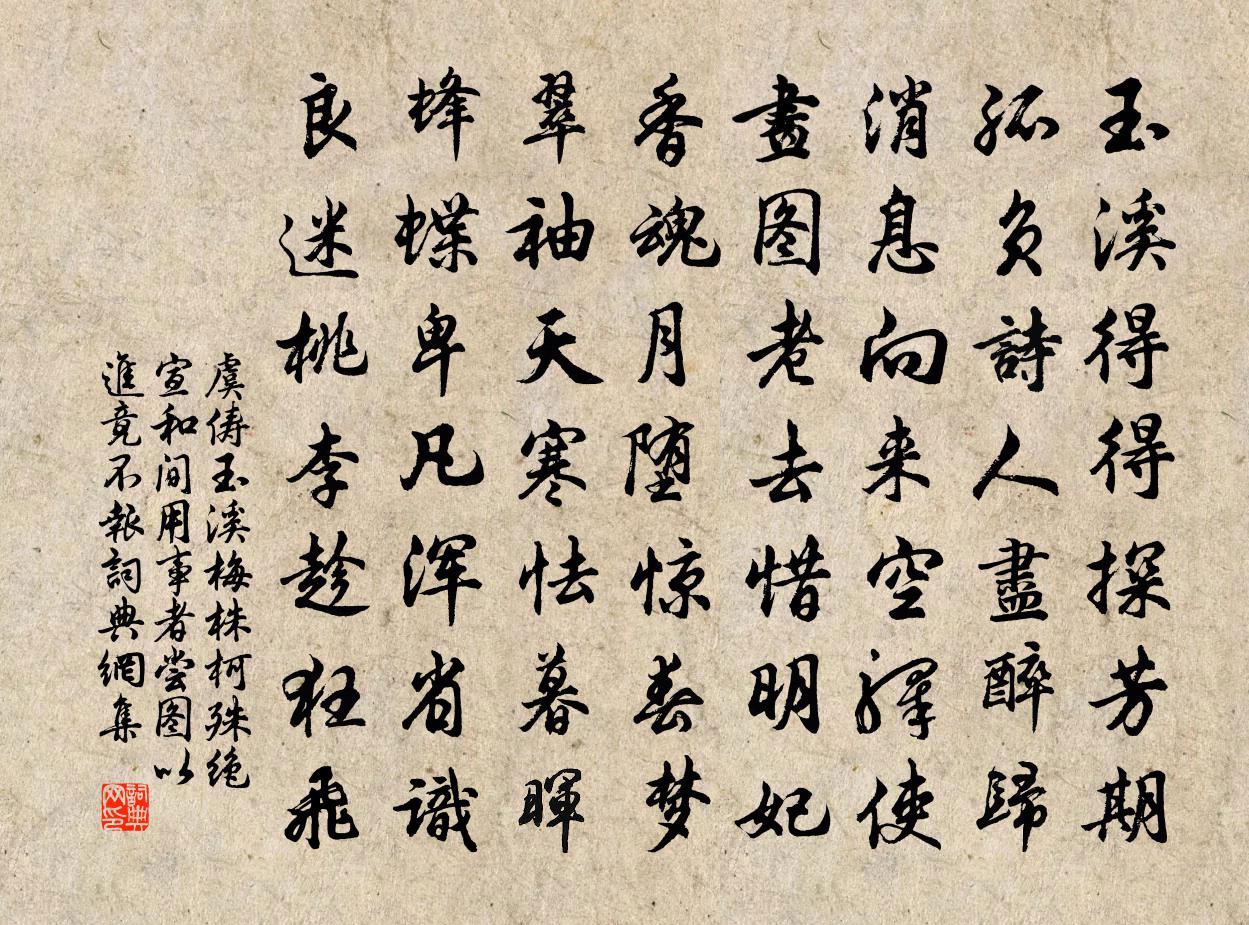 玉溪得得探芳期
孤负詩人盡醉歸
消息向来空驛使
畫图老去惜明妃
香魂月堕惊春梦
翠袖天寒怯暮暉
蜂蝶卑凡浑省識
良迷桃李趁狂飛
虞俦玉溪梅株柯殊绝
宣和间用事者尝图以
進竟不報詞典網集
詞典网印